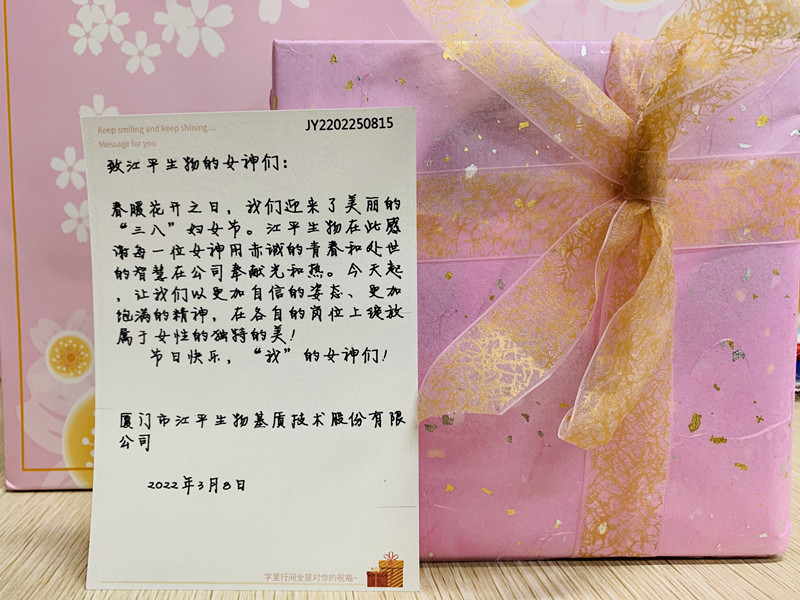 Keep smiling and keep shining....
JY2202250815
Message for you
致江平生物的女神们：
春暖花开之日，我们迎来了美丽的
“三八”妇女节。江平生物在此感
谢每一位女神用赤诚的青春和处世
的智慧在公司奉献光和热。今天起
，让我们以更加自信的姿态、更加
饱满的精神，在各自的岗位上绽放
属于女性的独特的美！
节日快乐，“我”的女神们！
厦门市江平生物基质技术股份有限
公司
2022年3月8日
字里行间全是对你的祝福~